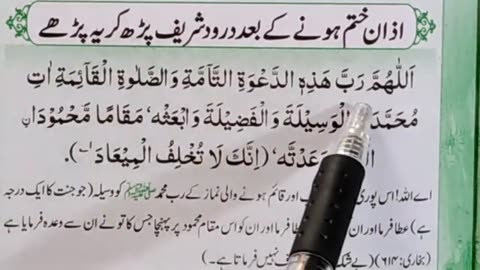 اذان ختم ہونے کے بعد درود شریف پڑھ کر یہ پڑھے
اَللّٰهُمَّ رَبَّ هٰذِهِ الدَّعْوَةِ التَّآمَّةِ وَالصَّلٰوةِ الْقَآئِمَةِ اٰتِ
مُحَمَّدَ الْوَسِيْلَةَ وَالْفَضِيْلَةَ وَابْعَثْهُ مَقَامًا مَّحْمُوْدَانِ
عَدْتَّهٗ (اِنَّكَ لَا تُخْلِفُ الْمِيْعَادَ)۔
اے اللہ! اس پوری اور قائم ہونے والی نماز کے رب محمد ﷺ کو وسیلہ (جو جنت کا ایک درجہ
ہے) عطا فرما اور ان کو اور ان کو اس مقام محمود پر پہنچا جس کا تو نے ان سے وعدہ فرمایا ہے
(بخاری: ۶۱۴) (بے شک نہیں فرماتا ہے۔)